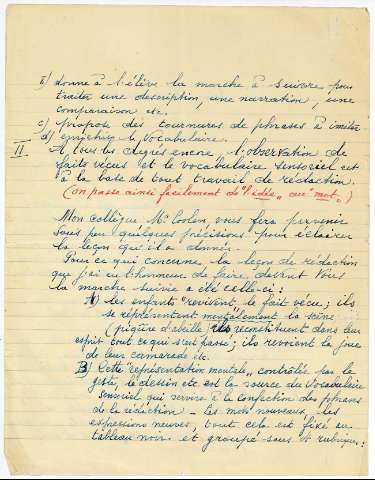 b) donne à l'élève la marche à suivre pour
traiter une description, une narration, une
comparaison etc.
c) propose des tournures de phrases à imiter
d) enrichir le vocabulaire.
II A tous les degrés encore l'observation de
faits vécus et le vocabulaire sensoriel est
à la base de tout travail de rédaction.
(on passe ainsi facilement de "l'idée" au "mot".)
Mon collègue Mr vous fera parvenir
sous peu quelques précisions pour éclairer
la leçon qu'il a donnée.
Pour ce qui concerne la leçon de rédaction
que j'ai eu l'honneur de faire devant Vous
la marche suivie a été celle-ci :
A) Les enfants "revivent le fait vécu ; ils
se représentent mentalement la scène
(piqûre d'abeille) ils reconstituent dans leur
esprit tout ce qui s'est passé ; ils revoient la joue
de leur camarade etc.
B) Cette "représentation mentale" contrôlée par le
geste, le dessin etc est la source du vocabulaire
sensoriel qui servira à la confection des phrases
de la rédaction - les mots nouveaux, les
expressions neuves, tout cela est fixé au
tableau noir et groupé sous rubriques :